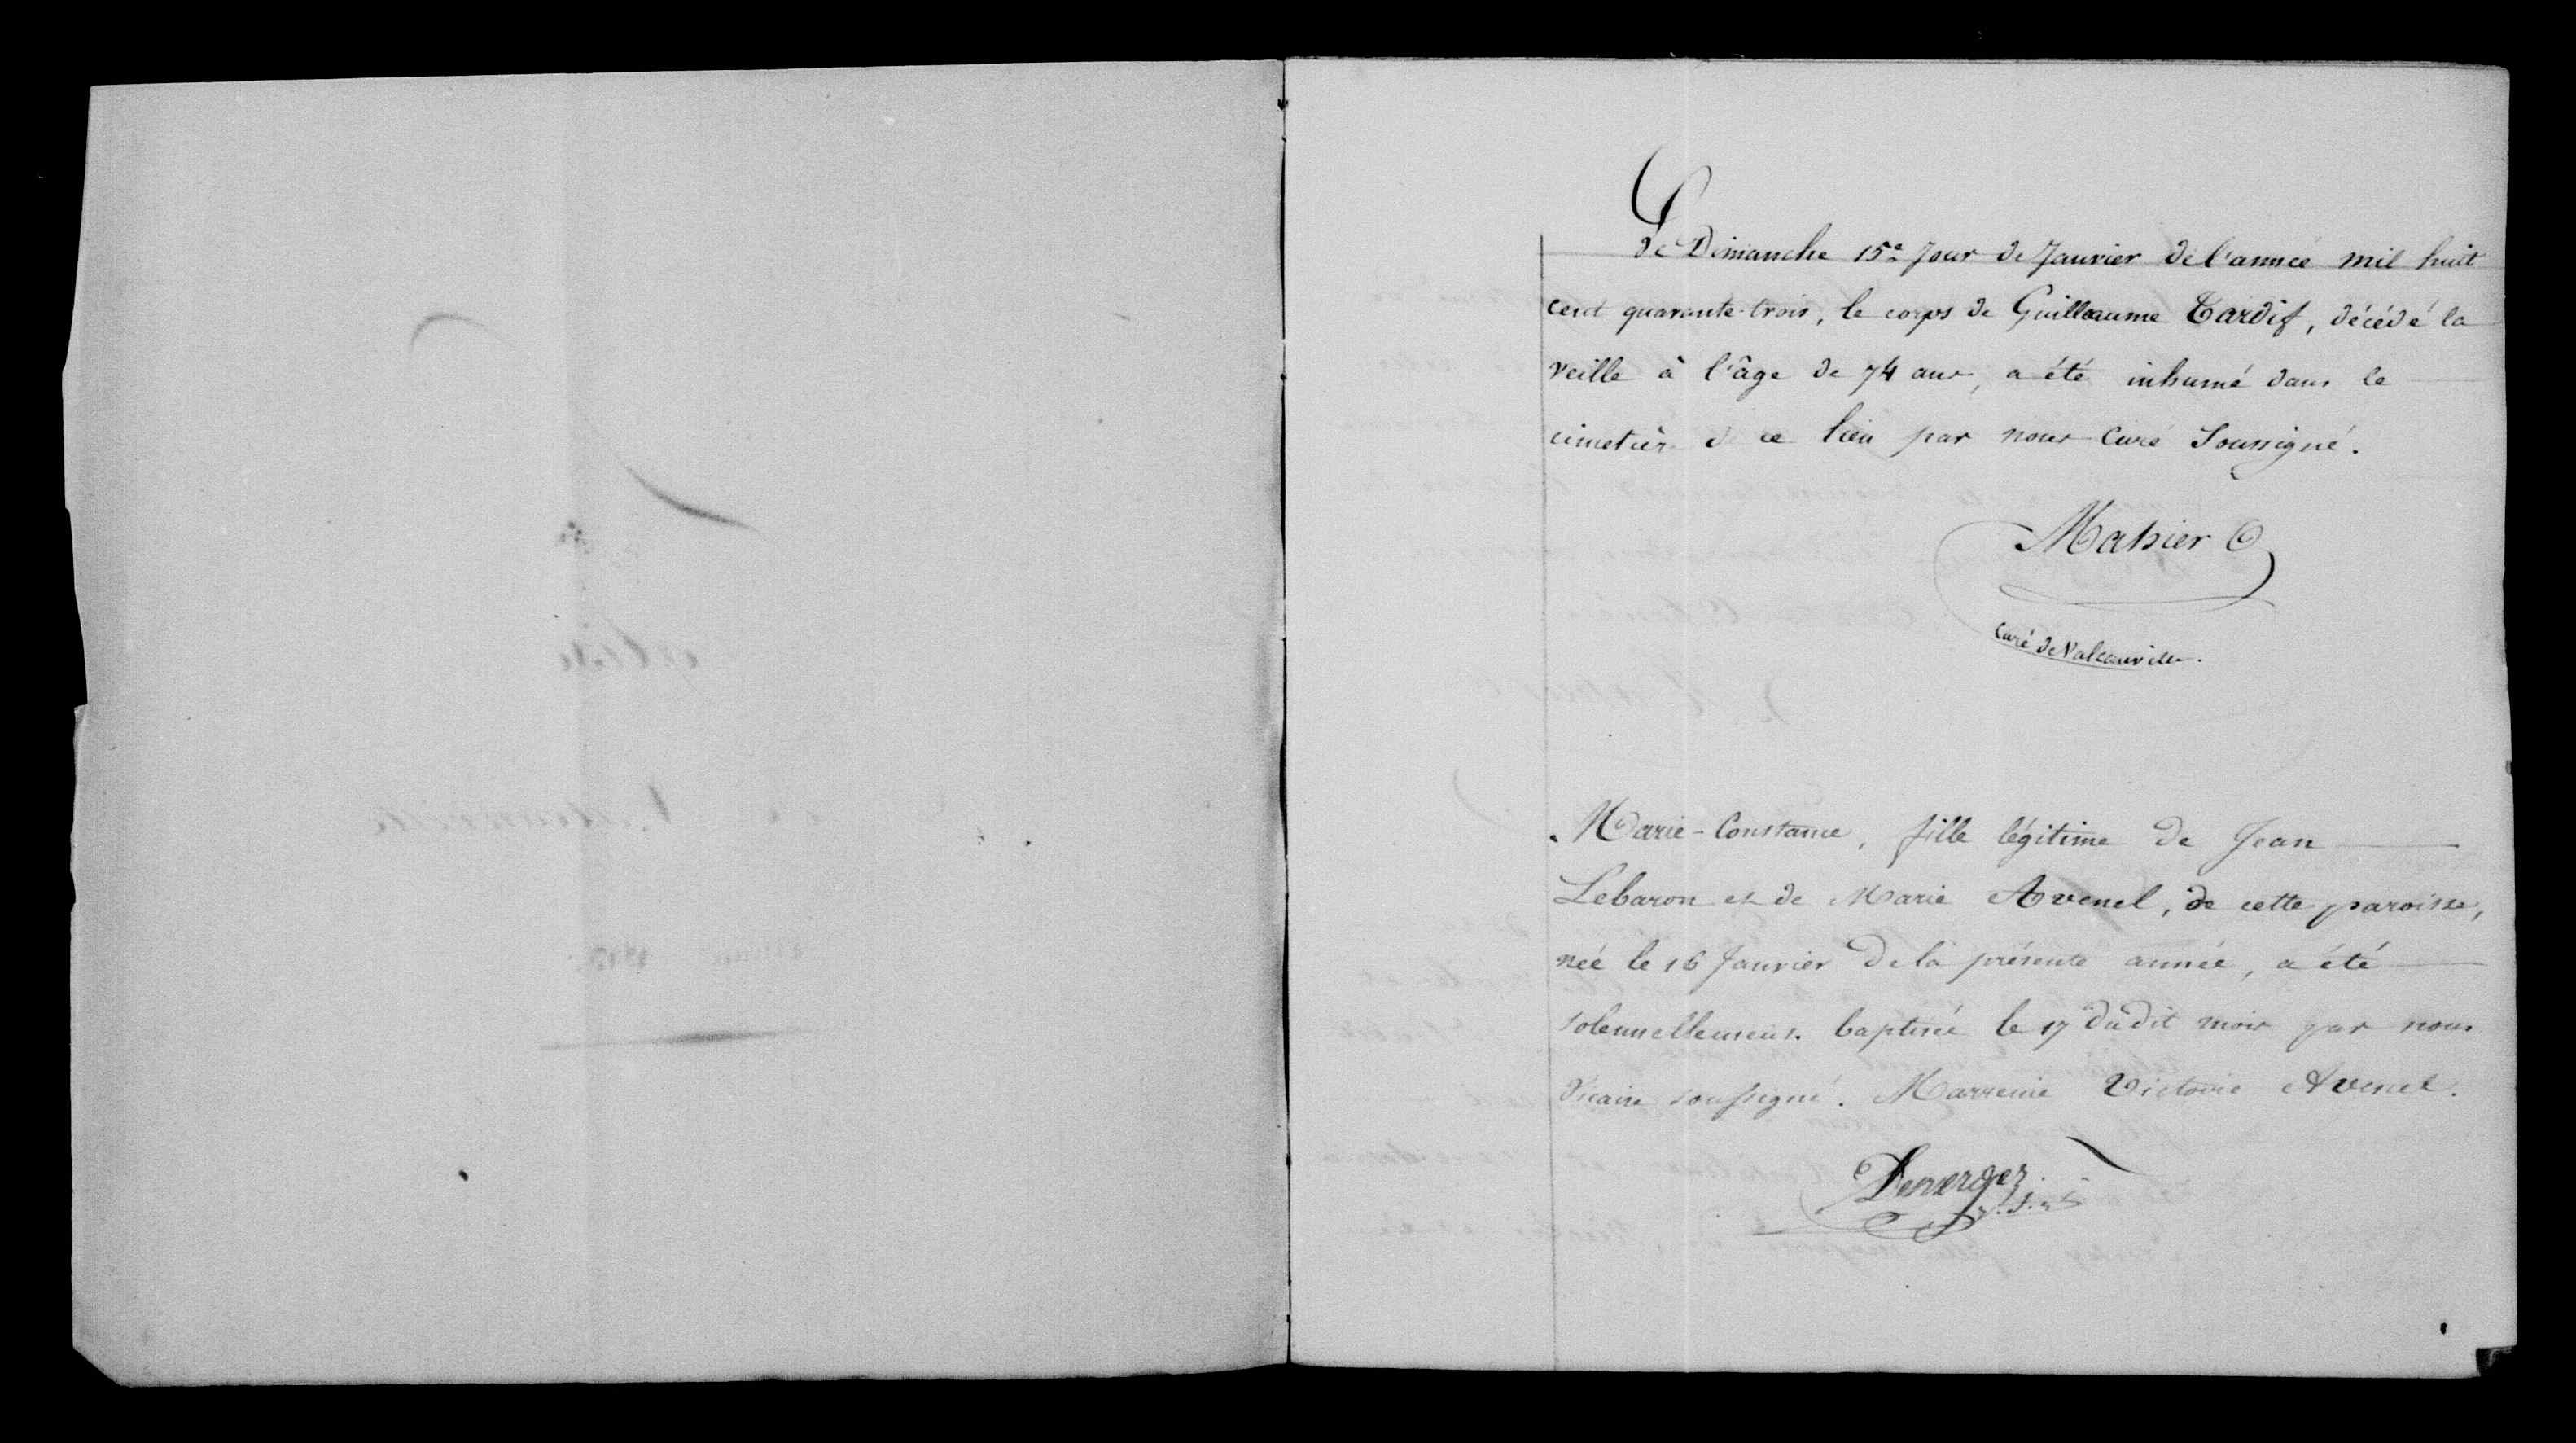 Le Dimanche 15e Jour de Janvier de l'année mil huit
cent quarante-trois, le corps de Guillaume Tardif, décédé la
veille à l'âge de 74 ans, a été inhumé dans le
cimetièr d ce lieu par nous Curé Soussigné.
Mahier
Curé de Valcanville.
Marie-Constance, fille légitime de Jean
Lebaron et de Marie Avenel, de cette paroisse,
née le 16 Janvier de la présente année, a été
solennellement baptisée le 17 dudit mois par nous
Vicaire soussigné. Marreine Victoire Avenel.